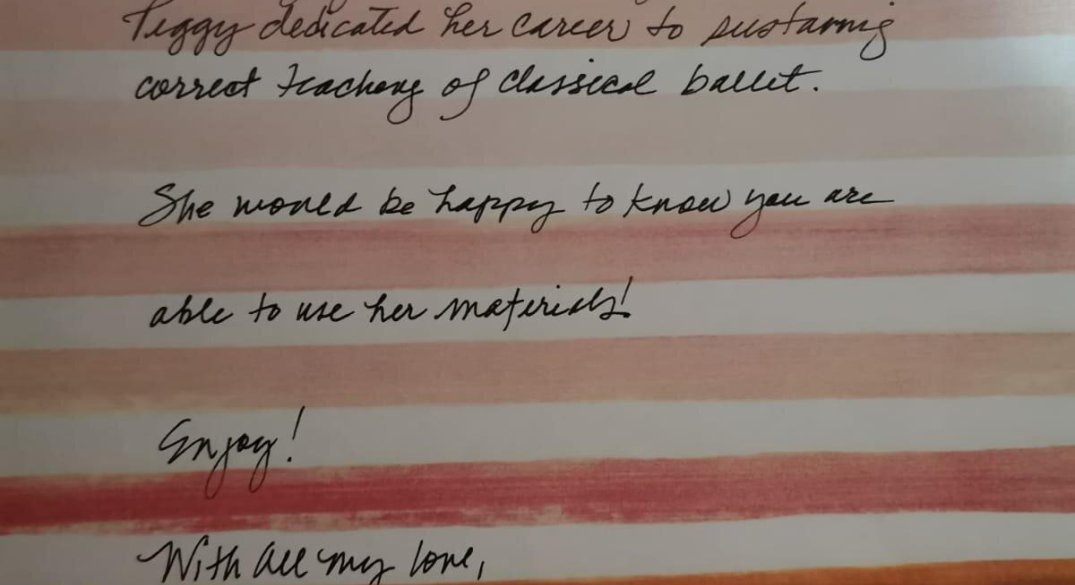 Peggy dedicated her career to sustaing
correct teaching of classical ballet.
She would be happy to know you are
able to use her materials!
Enjoy!
With all my love,